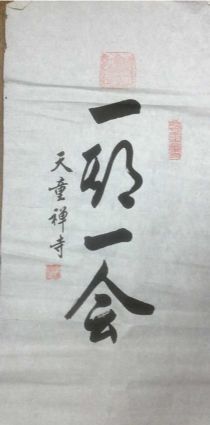 一期一会
天童禅寺